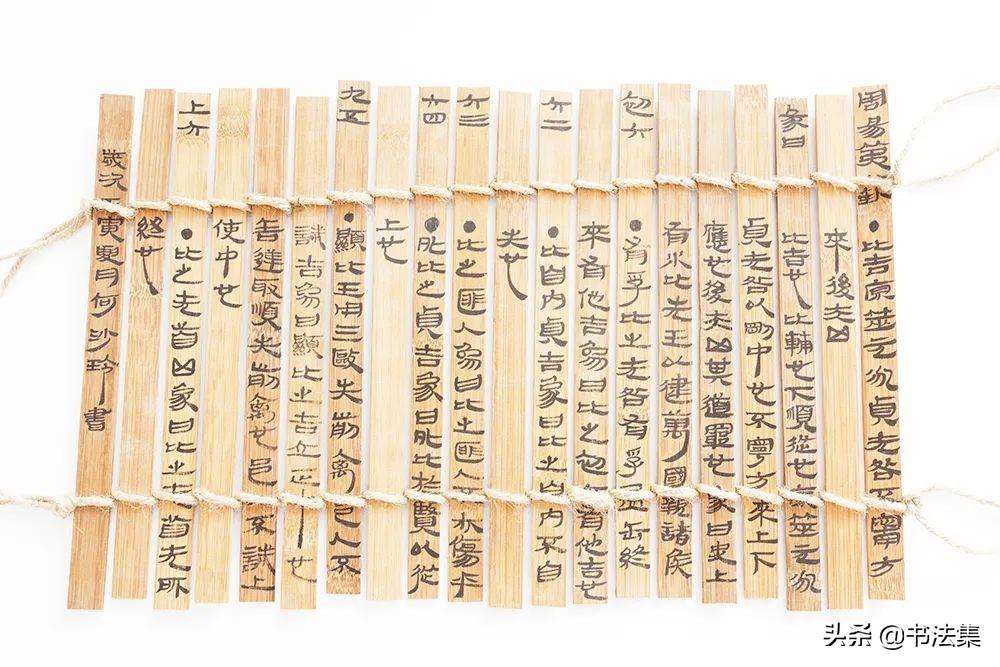 周易第 ●比吉原筮元永貞无咎不寧方
來後夫凶
彖曰 比吉也比輔也下順從也原筮元永
貞无咎以剛中也不寧方來上下
應也後夫凶其道窮也象曰地上
有水比先王以建萬國親諸侯
初六 ●有孚比之无咎有孚盈缶終
來有他吉象曰比之初六有他吉也
六二 ●比自內貞吉象曰比之自內不自
失也
六三 ●比之匪人象曰比之匪人不亦傷乎
六四 ●外比之貞吉象曰外比於賢以從
上也
九五 ●顯比王用三敺失前禽邑人不
誡吉象曰顯比之吉位正中也
舍逆取順失前禽也邑人不誡上
使中也
上六 ●比之无首凶象曰比之无首无所
終也
歲次壬寅夏月何沙玲書
头条 @书法集